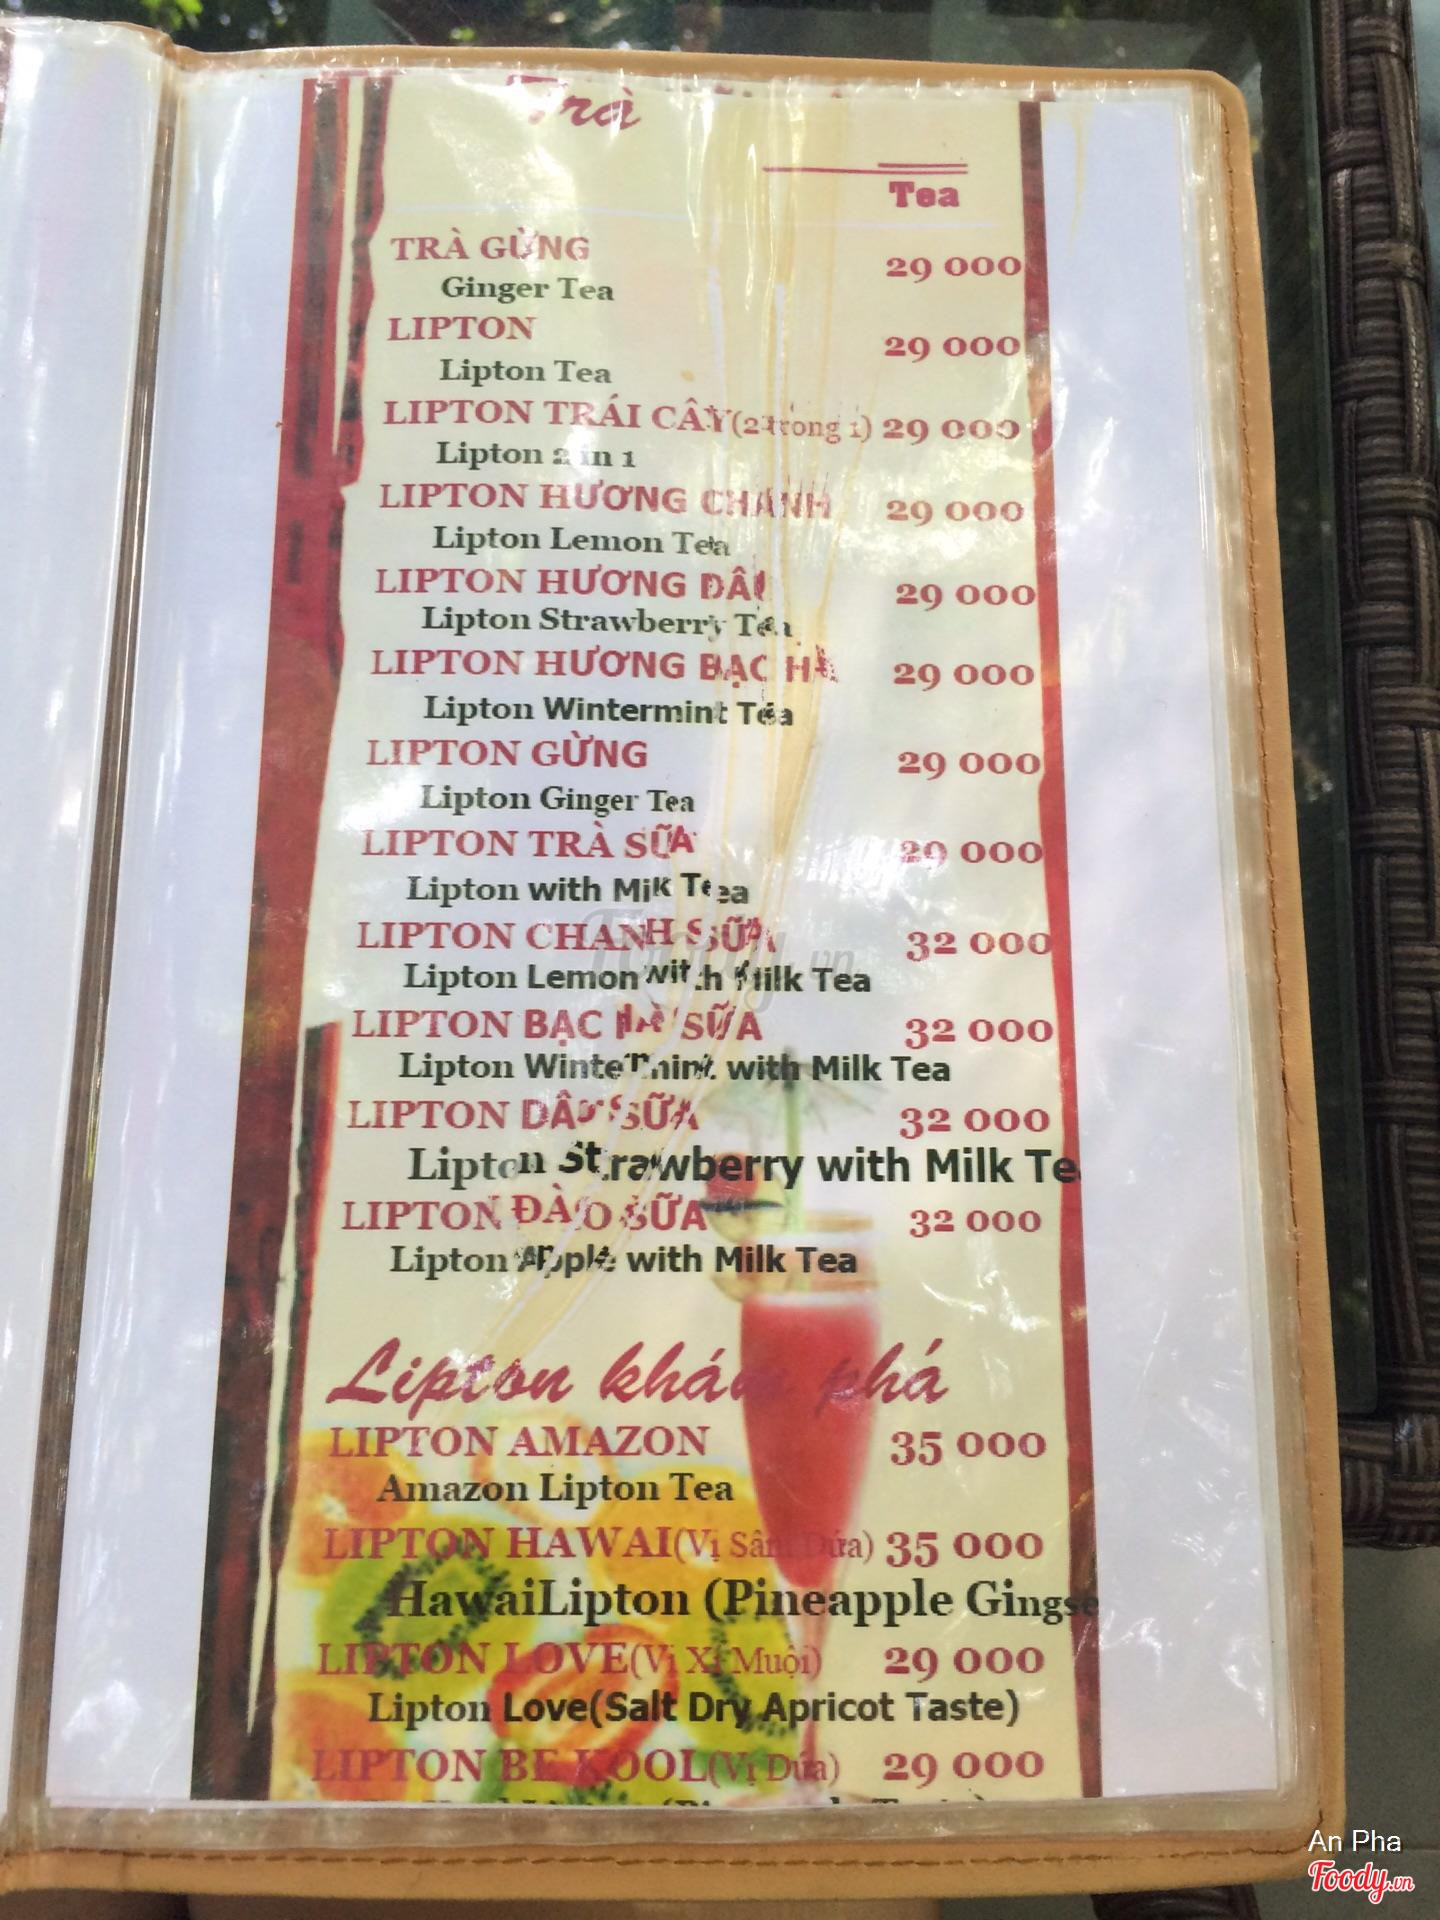 Trà
Tea
TRÀ GỪNG 29 000
Ginger Tea
LIPTON 29 000
Lipton Tea
LIPTON TRÁI CÂY(2 trong 1) 29 000
Lipton 2 in 1
LIPTON HƯƠNG CHANH 29 000
Lipton Lemon Tea
LIPTON HƯƠNG DÂU 29 000
Lipton Strawberry Tea
LIPTON HƯƠNG BẠC HÀ 29 000
Lipton Wintermint Tea
LIPTON GỪNG 29 000
Lipton Ginger Tea
LIPTON TRÀ SỮA 29 000
Lipton with Milk Tea
LIPTON CHANH SỮA 32 000
Lipton Lemon with Milk Tea
LIPTON BẠC HÀ SỮA 32 000
Lipton Wintermint with Milk Tea
LIPTON DÂU SỮA 32 000
Lipton Strawberry with Milk Te
LIPTON ĐÀO SỮA 32 000
Lipton Apple with Milk Tea
Lipton khám phá
LIPTON AMAZON 35 000
Amazon Lipton Tea
LIPTON HAWAI(Vị Sâm Dứa) 35 000
HawaiLipton (Pineapple Gingse
LIPTON LOVE(Vị Xí Muội) 29 000
Lipton Love(Salt Dry Apricot Taste)
LIPTON BE KOOL(Vị Dứa) 29 000
Foody.vn
An Pha
Foody.vn